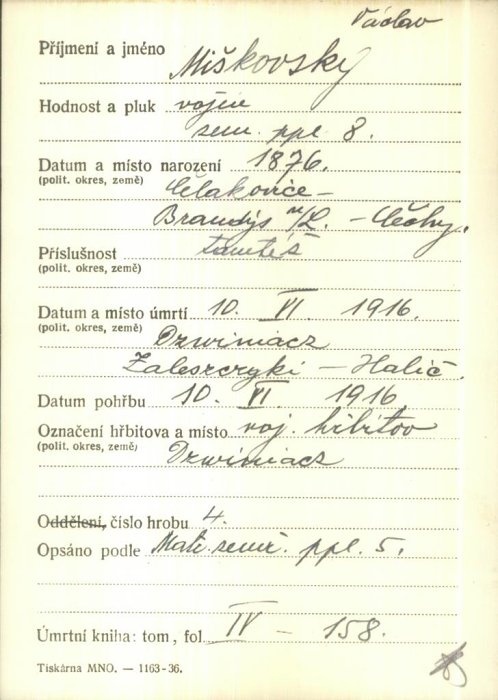 Václav
Příjmení a jméno Miškovský
Hodnost a pluk vojín
zem. ppl. 8.
Datum a místo narození 1876.
(polit. okres, země) Čelakovice -
Brandýs n/L. - Čechy.
Příslušnost tamtéž
(polit. okres, země)
Datum a místo úmrtí 10. VI. 1916.
(polit. okres, země) Dzwiniacz
Zaleszczyki - Halič.
Datum pohřbu 10. VI 1916
Označení hřbitova a místo voj. hřbitov
(polit. okres, země) Dzwiniacz
Oddělení, číslo hrobu 4.
Opsáno podle Matr. zemř. ppl. 5.
Úmrtní kniha: tom, fol IV - 158.
Tiskárna MNO. — 1163-36.